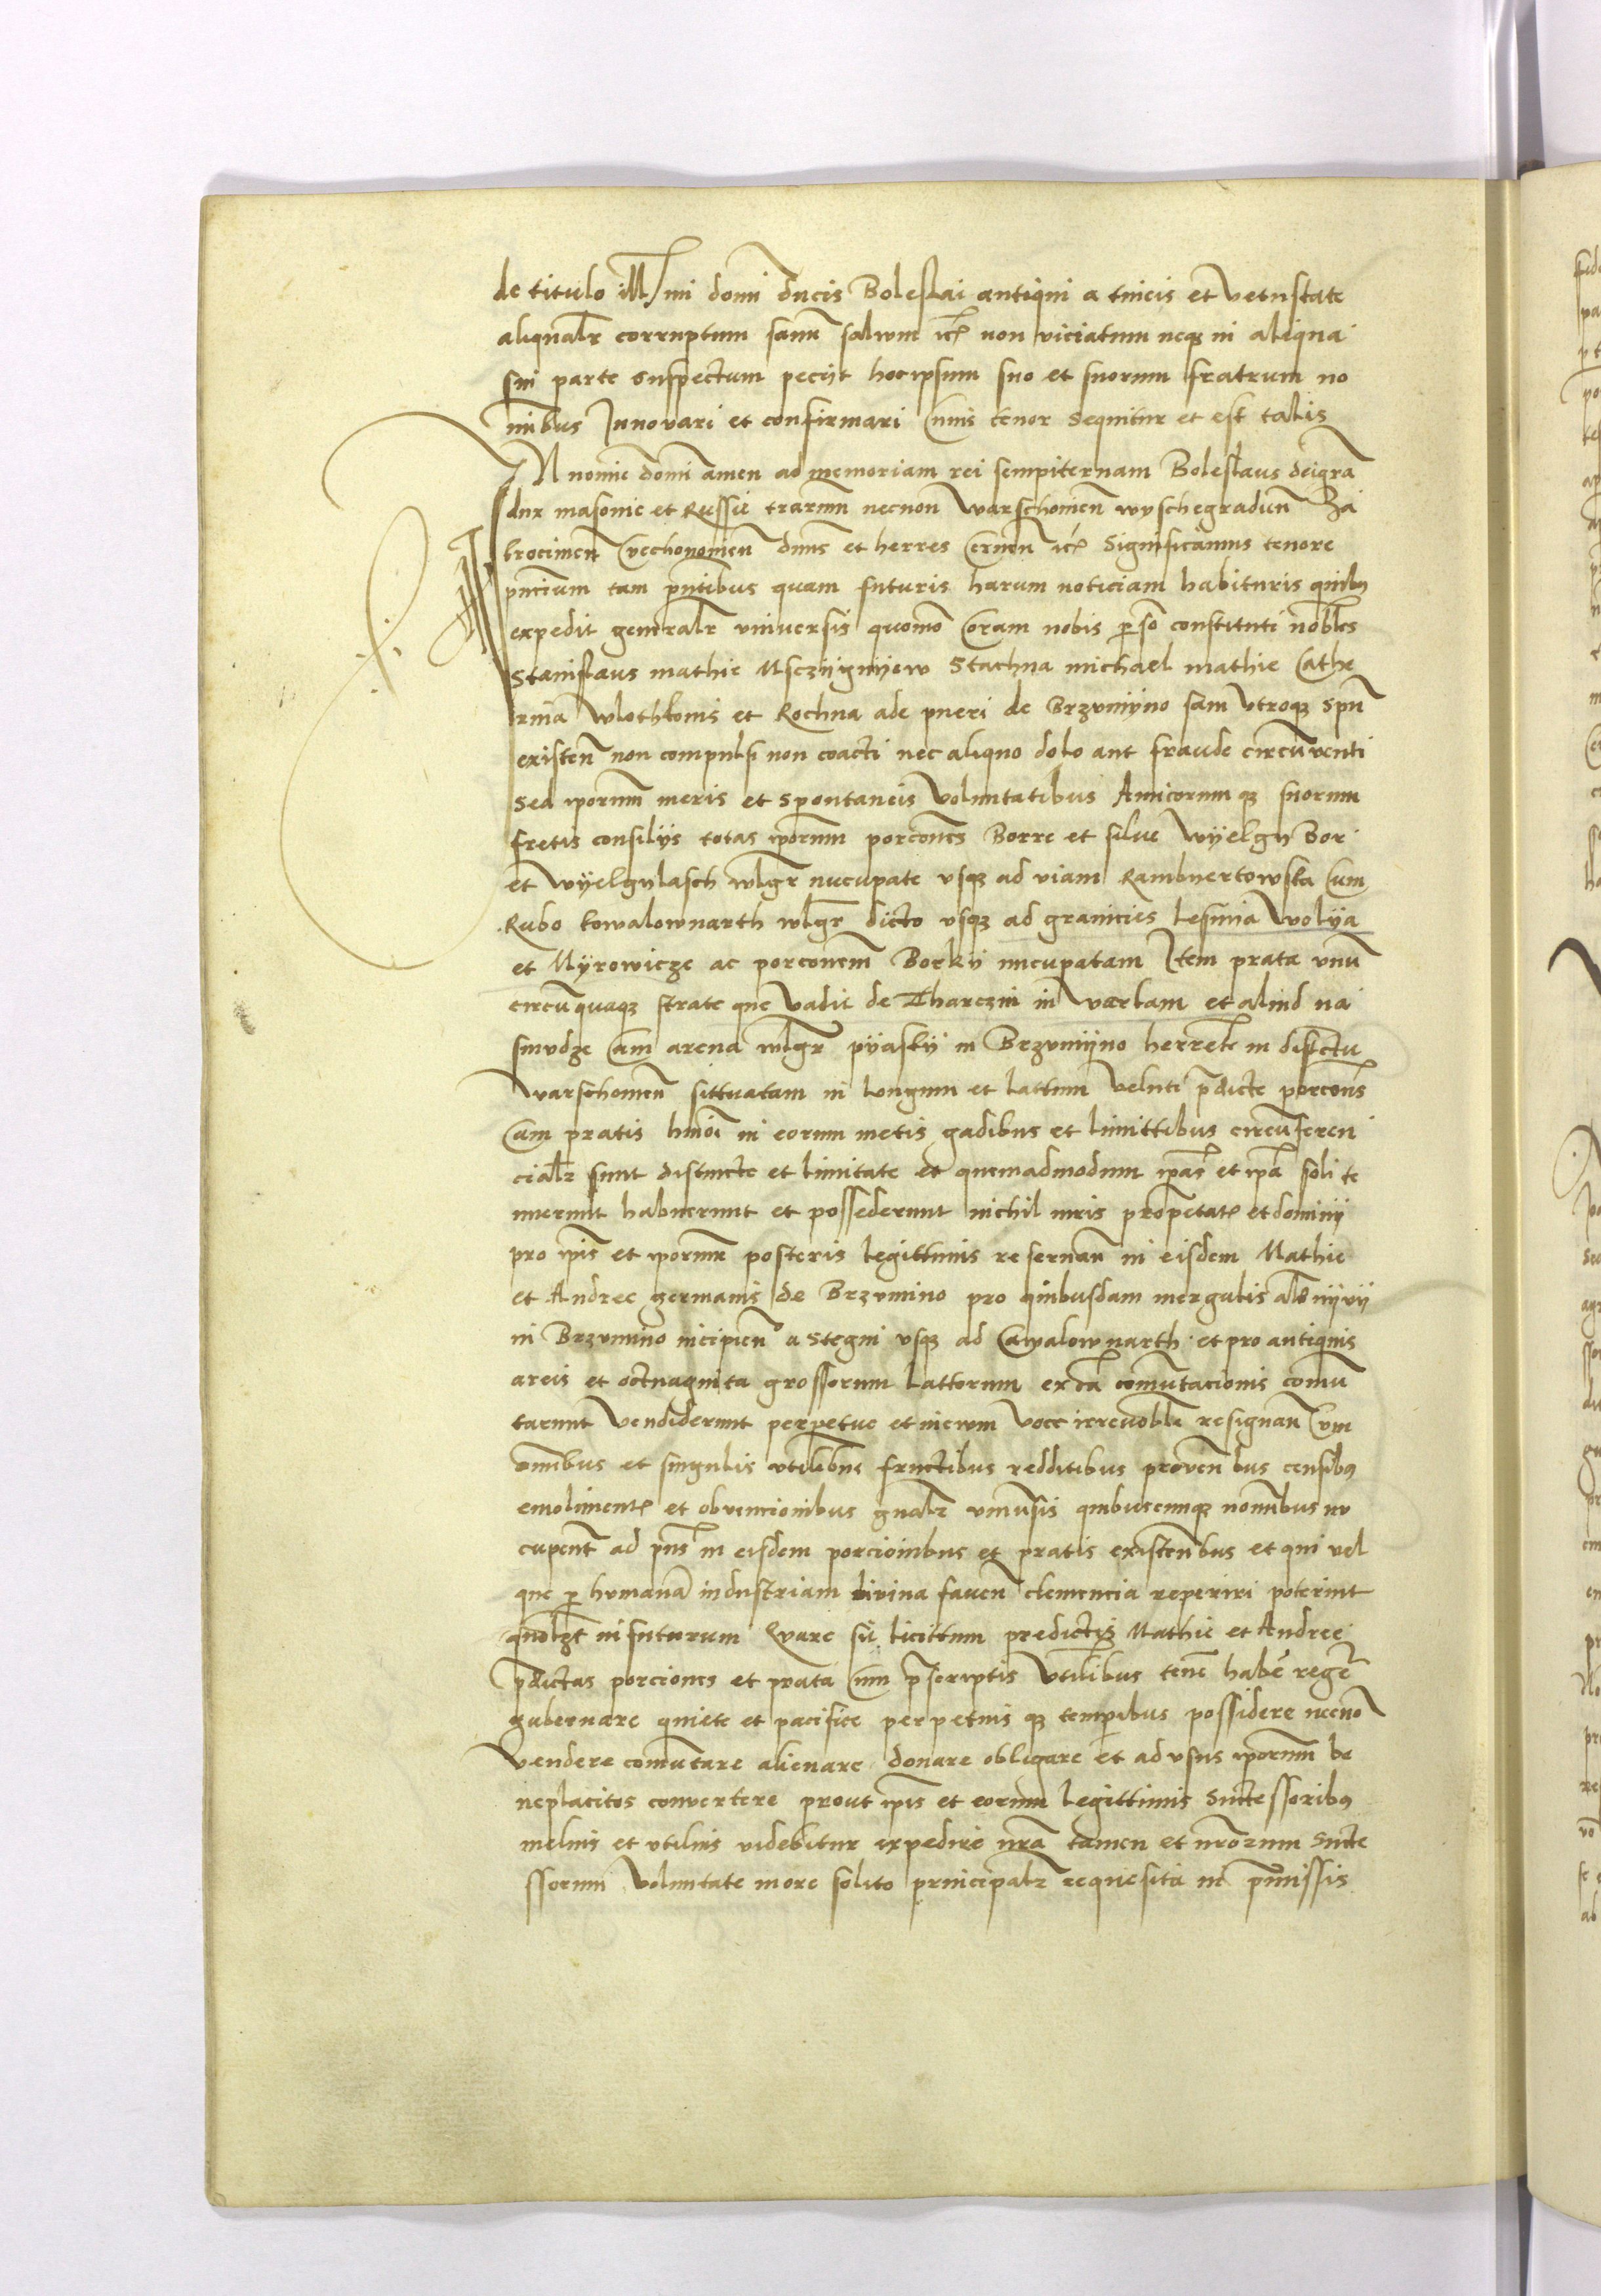 de titulo illmi domi ducis Boleslai antiqui a tineis et vetustate
aliqualr corruptum sanu salvum etc non viciatum neqz in aliqua
sui parte suspectum peciit hocipsum suo et suorum fratrum no
minibus Innovari et confirmari Cuius tenor sequitur et est talis
IN nomie domi amen ad memoriam rei sempiternam Boleslaus deigra
dux masovie et Russie trarum necnon warschovien wyschegradien Za
krocimen Czechonovien dnus et herres Cernen etc Significamus tenore
pncium tam pntibus quam futuris harum noticiam habituris quibus
expedit generalr universis quomo Coram nobis per so constituti nobles
Stanislaus mathie Msczugnyew Stachna michael mathie Cathe
rina wlothkonis et Rochna ade pueri de Brzvmyno sani utroqz spu
existen non compulsi non coacti nec aliquo dolo aut fraude circuventi
Sed iporum meris et spontaneis voluntatibus Amicorumqz suorum
fretis consilys totas iporum porcones Borre et silve wyelgy Bor
et wyelgylasch wlgr nucupate vsqz ad viam Rambuertowska Cum
Rubo kowalownarth wlgr dicto vsqz ad granicies lesnia wolya
et Myrowicze ac porconem Borky nucupatam Item prata unu
circuquaqz strate que vadit de Tharczin in varkam et aliud na
smvdze Cum arena wlgr pyasky in Brzvmyno herrete in districtu
warschovien sittuatam in longum et lattum veluti pdicte porcons
Cum pratis hmoi in eorum metis gadibus et limittibus circuferen
cialr sunt distincte et limitate et quemadmodum ipas et ipa soli te
nuerunt habuerunt et possederunt nichil iuris propetatz et dominy
pro ipis et iporum posteris legittimis reservan in eisdem Mathie
et Andree germanis de Brzvmino pro quibusdam mergulis als nyvy
in Brzvmino incipien a stegni vsqz ad Cawalownarth et pro antiquis
areis et octuaginta grossorum lattorum ex ca comutacionis comu
tarunt vendiderunt perpetue et in ewm voce irrevoble resignan Cum
omnibus et singulis utilibus fructibus redditibus provenbus censibus
emolimentz et obvencionibus gnalr vniusis quibuscumqz nominibus nu
cupent ad pns in eisdem porcionibus et pratis existenbus et qui vel
que p humana industriam divina faven clemencia reperiri poterint
quolzt in futurum Quare sit licittum predictis Mathie et Andree
pdictas porciones et prata Cum pscriptis utilibus tene habe rege
gubernare quiete et pacifice perpetuisqz temporibus possidere necno
vendere comutare alienare donare obligare et ad usus iporum be
neplacitos convertere prout ipis et eorum legittimis Successoribus
melius et utilius videbitur expedire nra tamen et nrorum Succe
ssorum voluntate more solito principalr requesita in pmissis